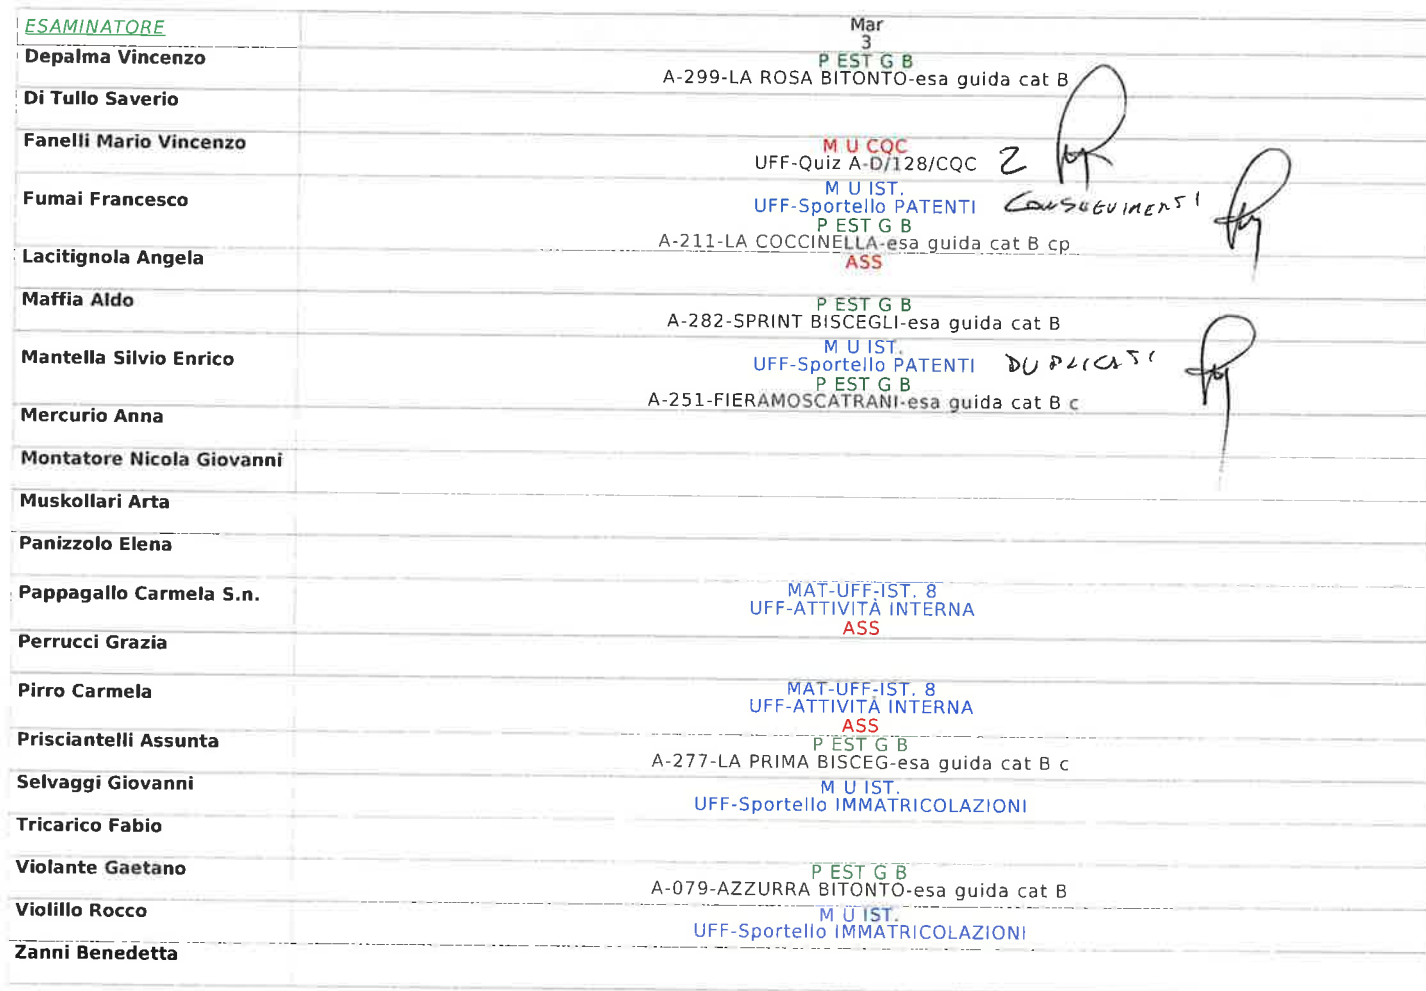 ESAMINATORE
Mar
3
Depalma Vincenzo
P EST G B
A-299-LA ROSA BITONTO-esa guida cat B
Di Tullo Saverio
Fanelli Mario Vincenzo
M U CQC
UFF-Quiz A-D/128/CQC 2
Fumai Francesco
M U IST.
UFF-Sportello PATENTI CONSEGUIMENTI
P EST G B
A-211-LA COCCINELLA-esa guida cat B cp
Lacitignola Angela
ASS
Maffia Aldo
P EST G B
A-282-SPRINT BISCEGLI-esa guida cat B
Mantella Silvio Enrico
M U IST.
UFF-Sportello PATENTI DUPLICATI
P EST G B
A-251-FIERAMOSCATRANI-esa guida cat B c
Mercurio Anna
Montatore Nicola Giovanni
Muskollari Arta
Panizzolo Elena
Pappagallo Carmela S.n.
MAT-UFF-IST. 8
UFF-ATTIVITÀ INTERNA
ASS
Perrucci Grazia
Pirro Carmela
MAT-UFF-IST. 8
UFF-ATTIVITÀ INTERNA
ASS
Prisciantelli Assunta
P EST G B
A-277-LA PRIMA BISCEG-esa guida cat B c
Selvaggi Giovanni
M U IST.
UFF-Sportello IMMATRICOLAZIONI
Tricarico Fabio
Violante Gaetano
P EST G B
A-079-AZZURRA BITONTO-esa guida cat B
Violillo Rocco
M U IST.
UFF-Sportello IMMATRICOLAZIONI
Zanni Benedetta